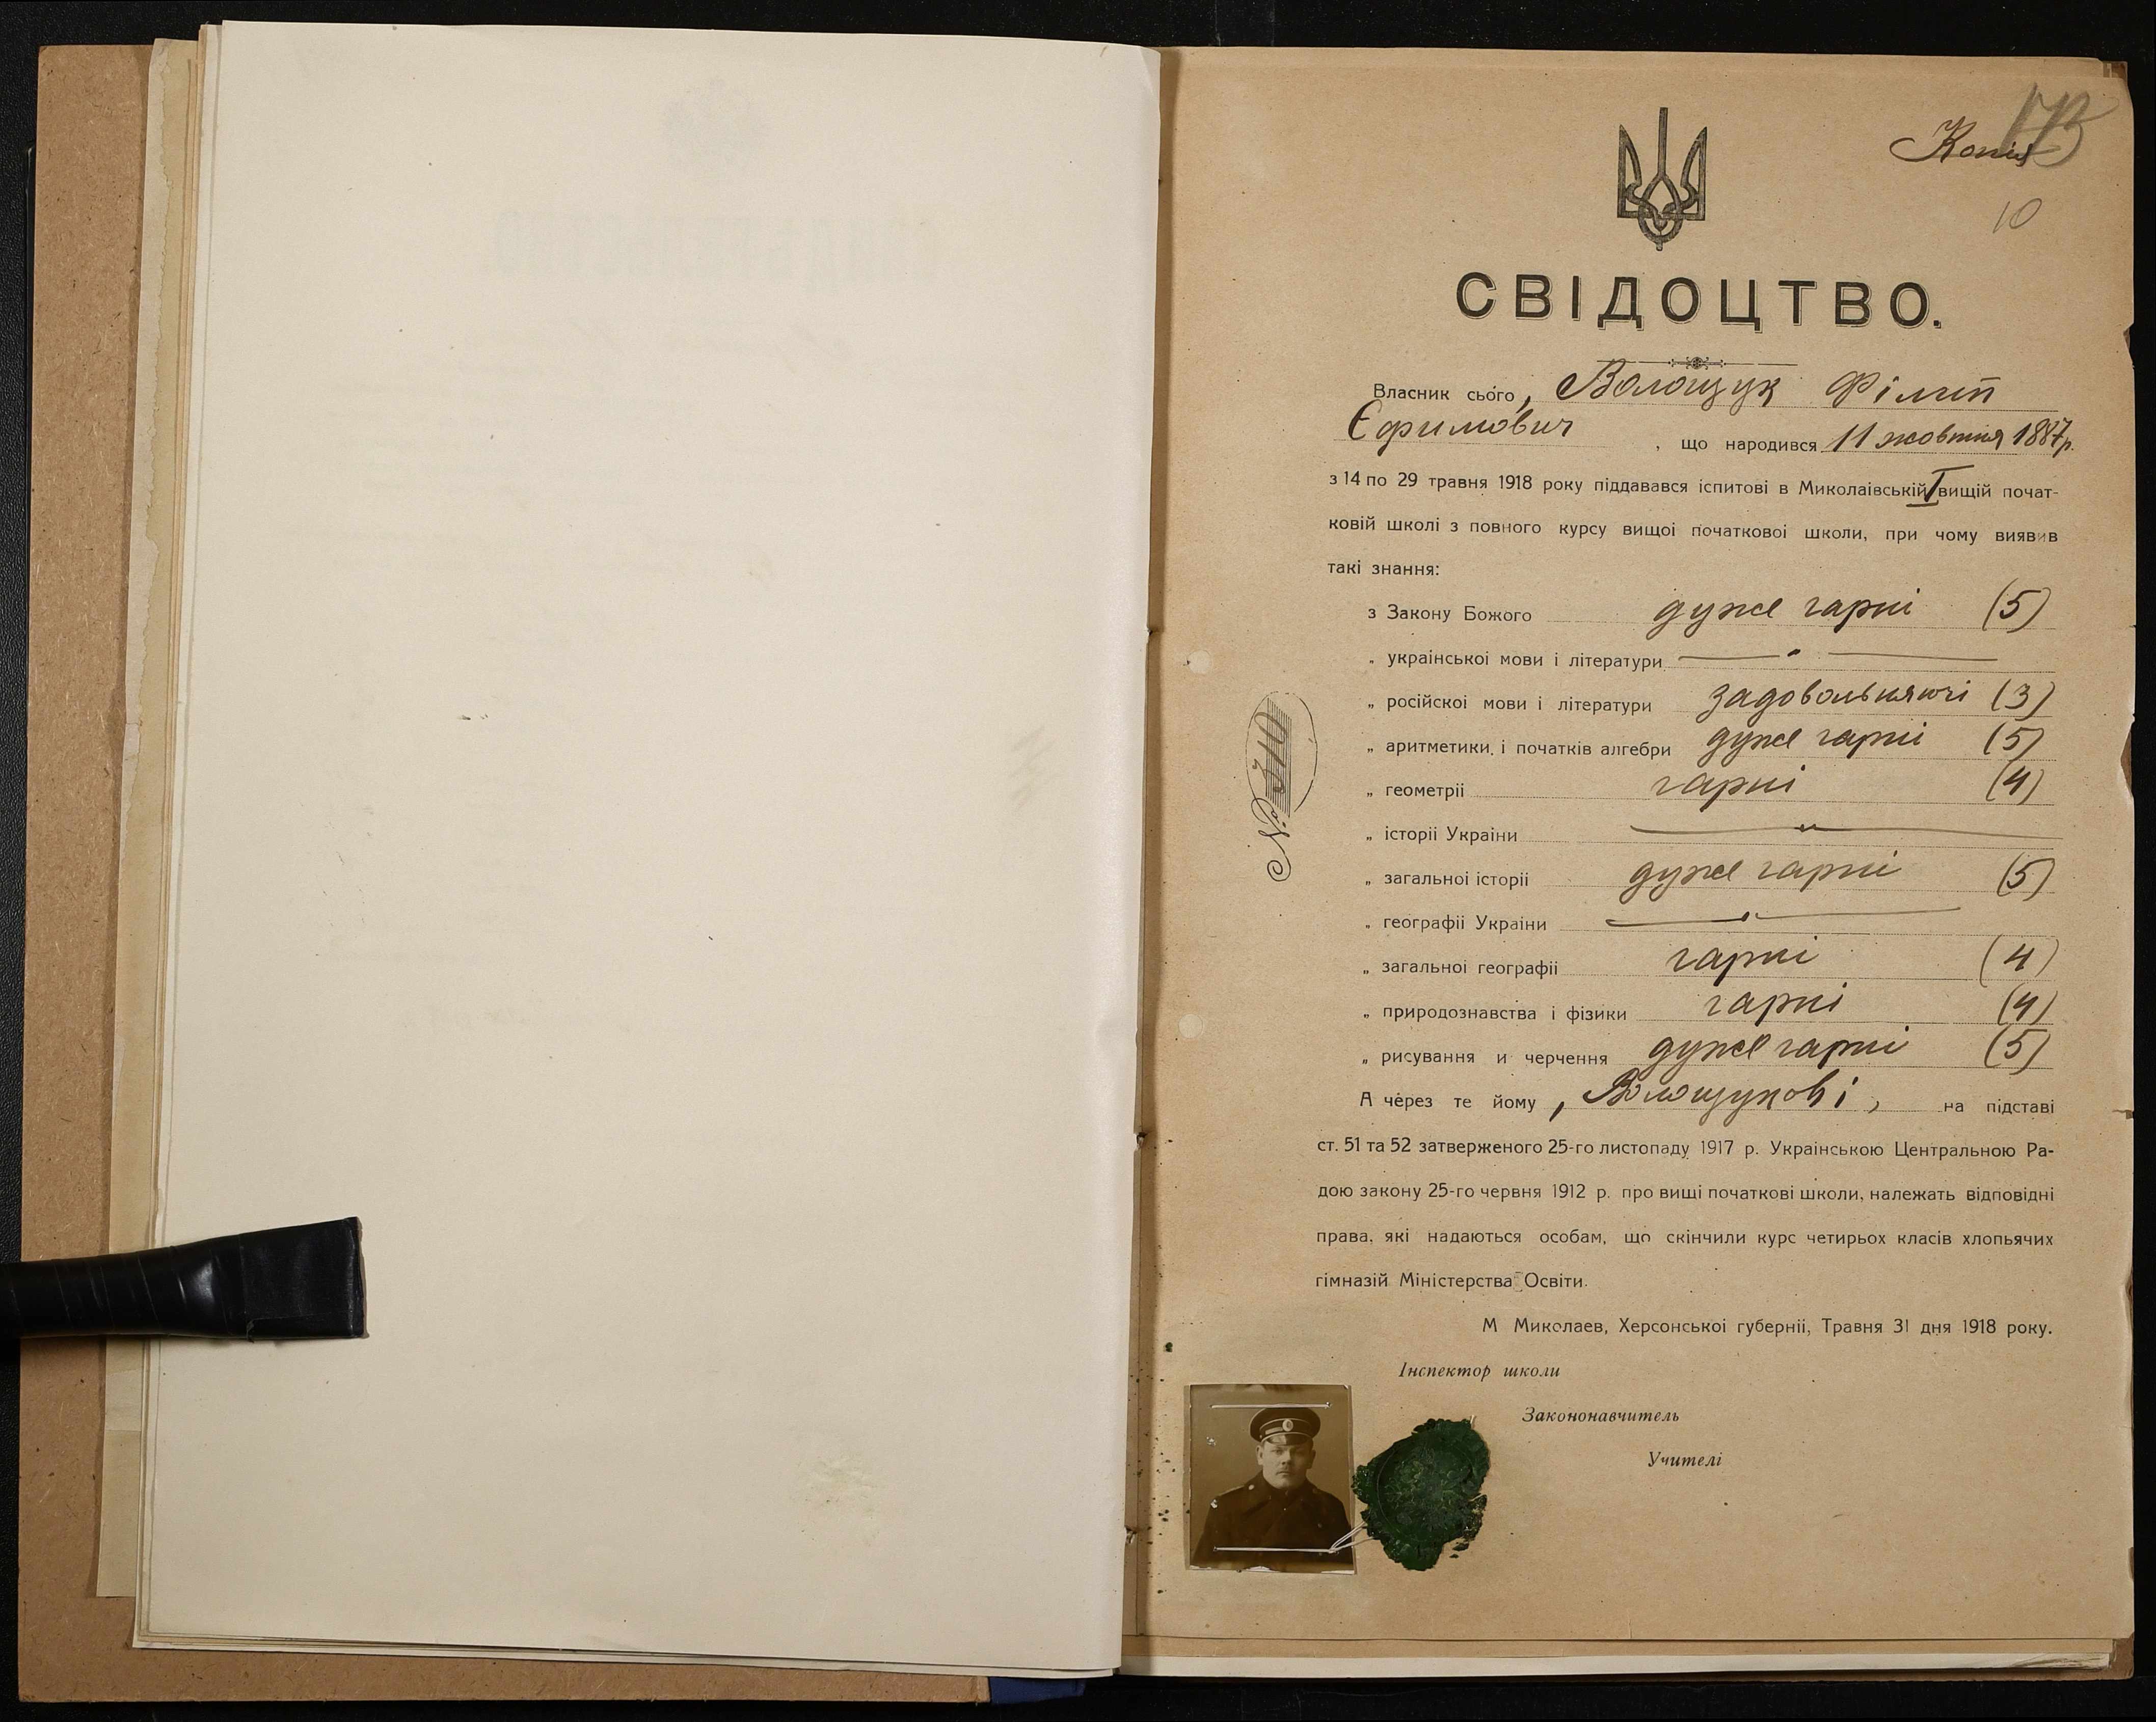 Копія
173
10
СВІДОЦТВО.
Власник сього, Волощук Філип
Єфимович, що народився 11 жовтня 1887 р.
з 14 по 29 травня 1918 року піддавався іспитові в Миколаівській I вищій почат-
ковій школі з повного курсу вищоі початковоі школи, при чому виявив
такі знання:
з Закону Божого дуже гарні (5)
„ украінськоі мови і літератури — „ —
„ російскоі мови і літератури задовольняючі (3)
„ аритметики і початків алгебри дуже гарні (5)
„ геометріі гарні (4)
„ історіі Украіни — „ —
„ загальноі історіі дуже гарні (5)
„ географіі Украіни — „ —
„ загальноі географіі гарні (4)
„ природознавства і фізики гарні (4)
„ рисування и черчення дуже гарні (5)
А через те йому, Волощукові, на підставі
ст. 51 та 52 затверженого 25-го листопаду 1917 р. Украінською Центральною Ра-
дою закону 25-го червня 1912 р. про вищі початкові школи, належать відповідні
права, які надаються особам, що скінчили курс четирьох класів хлопьячих
гімназій Міністерства Освіти.
М Миколаев, Херсонськоі губерніі, Травня 31 дня 1918 року.
Інспектор школи
Закононавчитель
Учителі
№ 3710